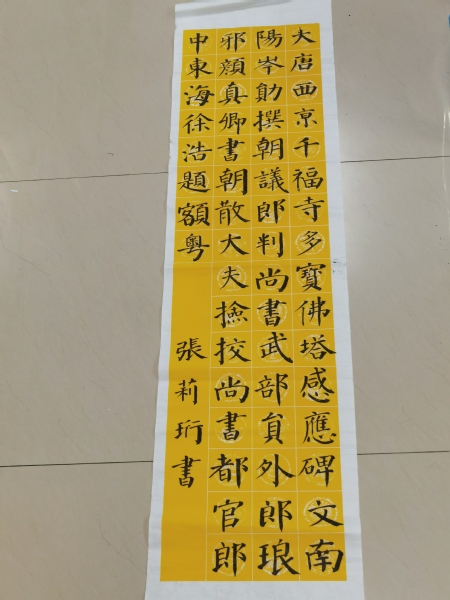 大唐西京千福寺多寶佛塔感應碑文南
陽岑勛撰朝議郎判尚書武部員外郎琅
邪顏真卿書朝散大夫撿挍尚書都官郎
中東海徐浩題額粵
張莉珩書